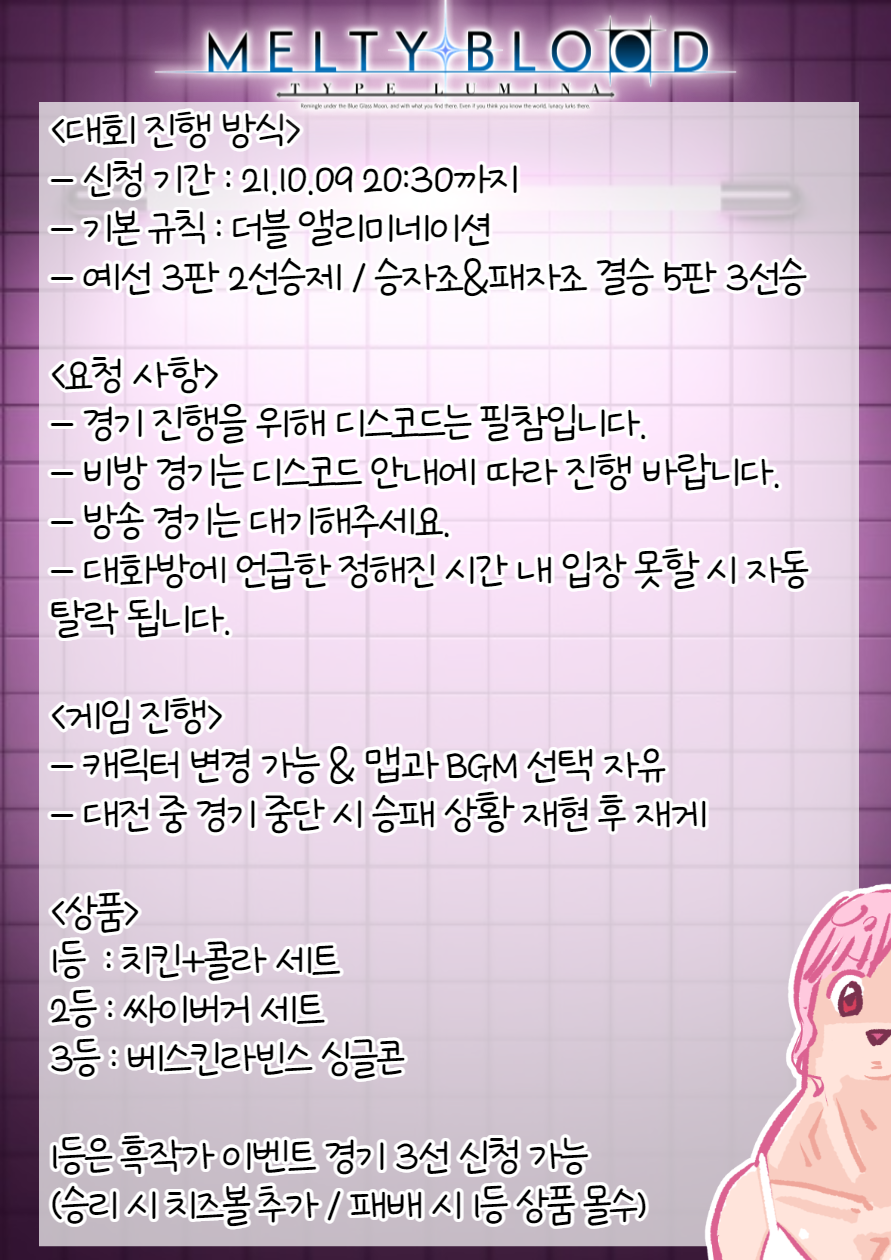 MELTY BLOOD
TYPE LUMINA
Remingle under the Blue Glass Moon, and with what you find there. Even if you think you know the world, lunacy lurks there.
<대회 진행 방식>
- 신청 기간 : 21.10.09 20:30까지
- 기본 규칙 : 더블 앨리미네이션
- 예선 3판 2선승제 / 승자조&패자조 결승 5판 3선승
<요청 사항>
- 경기 진행을 위해 디스코드는 필참입니다.
- 비방 경기는 디스코드 안내에 따라 진행 바랍니다.
- 방송 경기는 대기해주세요.
- 대화방에 언급한 정해진 시간 내 입장 못할 시 자동
탈락 됩니다.
<게임 진행>
- 캐릭터 변경 가능 & 맵과 BGM 선택 자유
- 대전 중 경기 중단 시 승패 상황 재현 후 재게
<상품>
1등 : 치킨+콜라 세트
2등 : 싸이버거 세트
3등 : 베스킨라빈스 싱글콘
1등은 흑작가 이벤트 경기 3선 신청 가능
(승리 시 치즈볼 추가 / 패배 시 1등 상품 몰수)